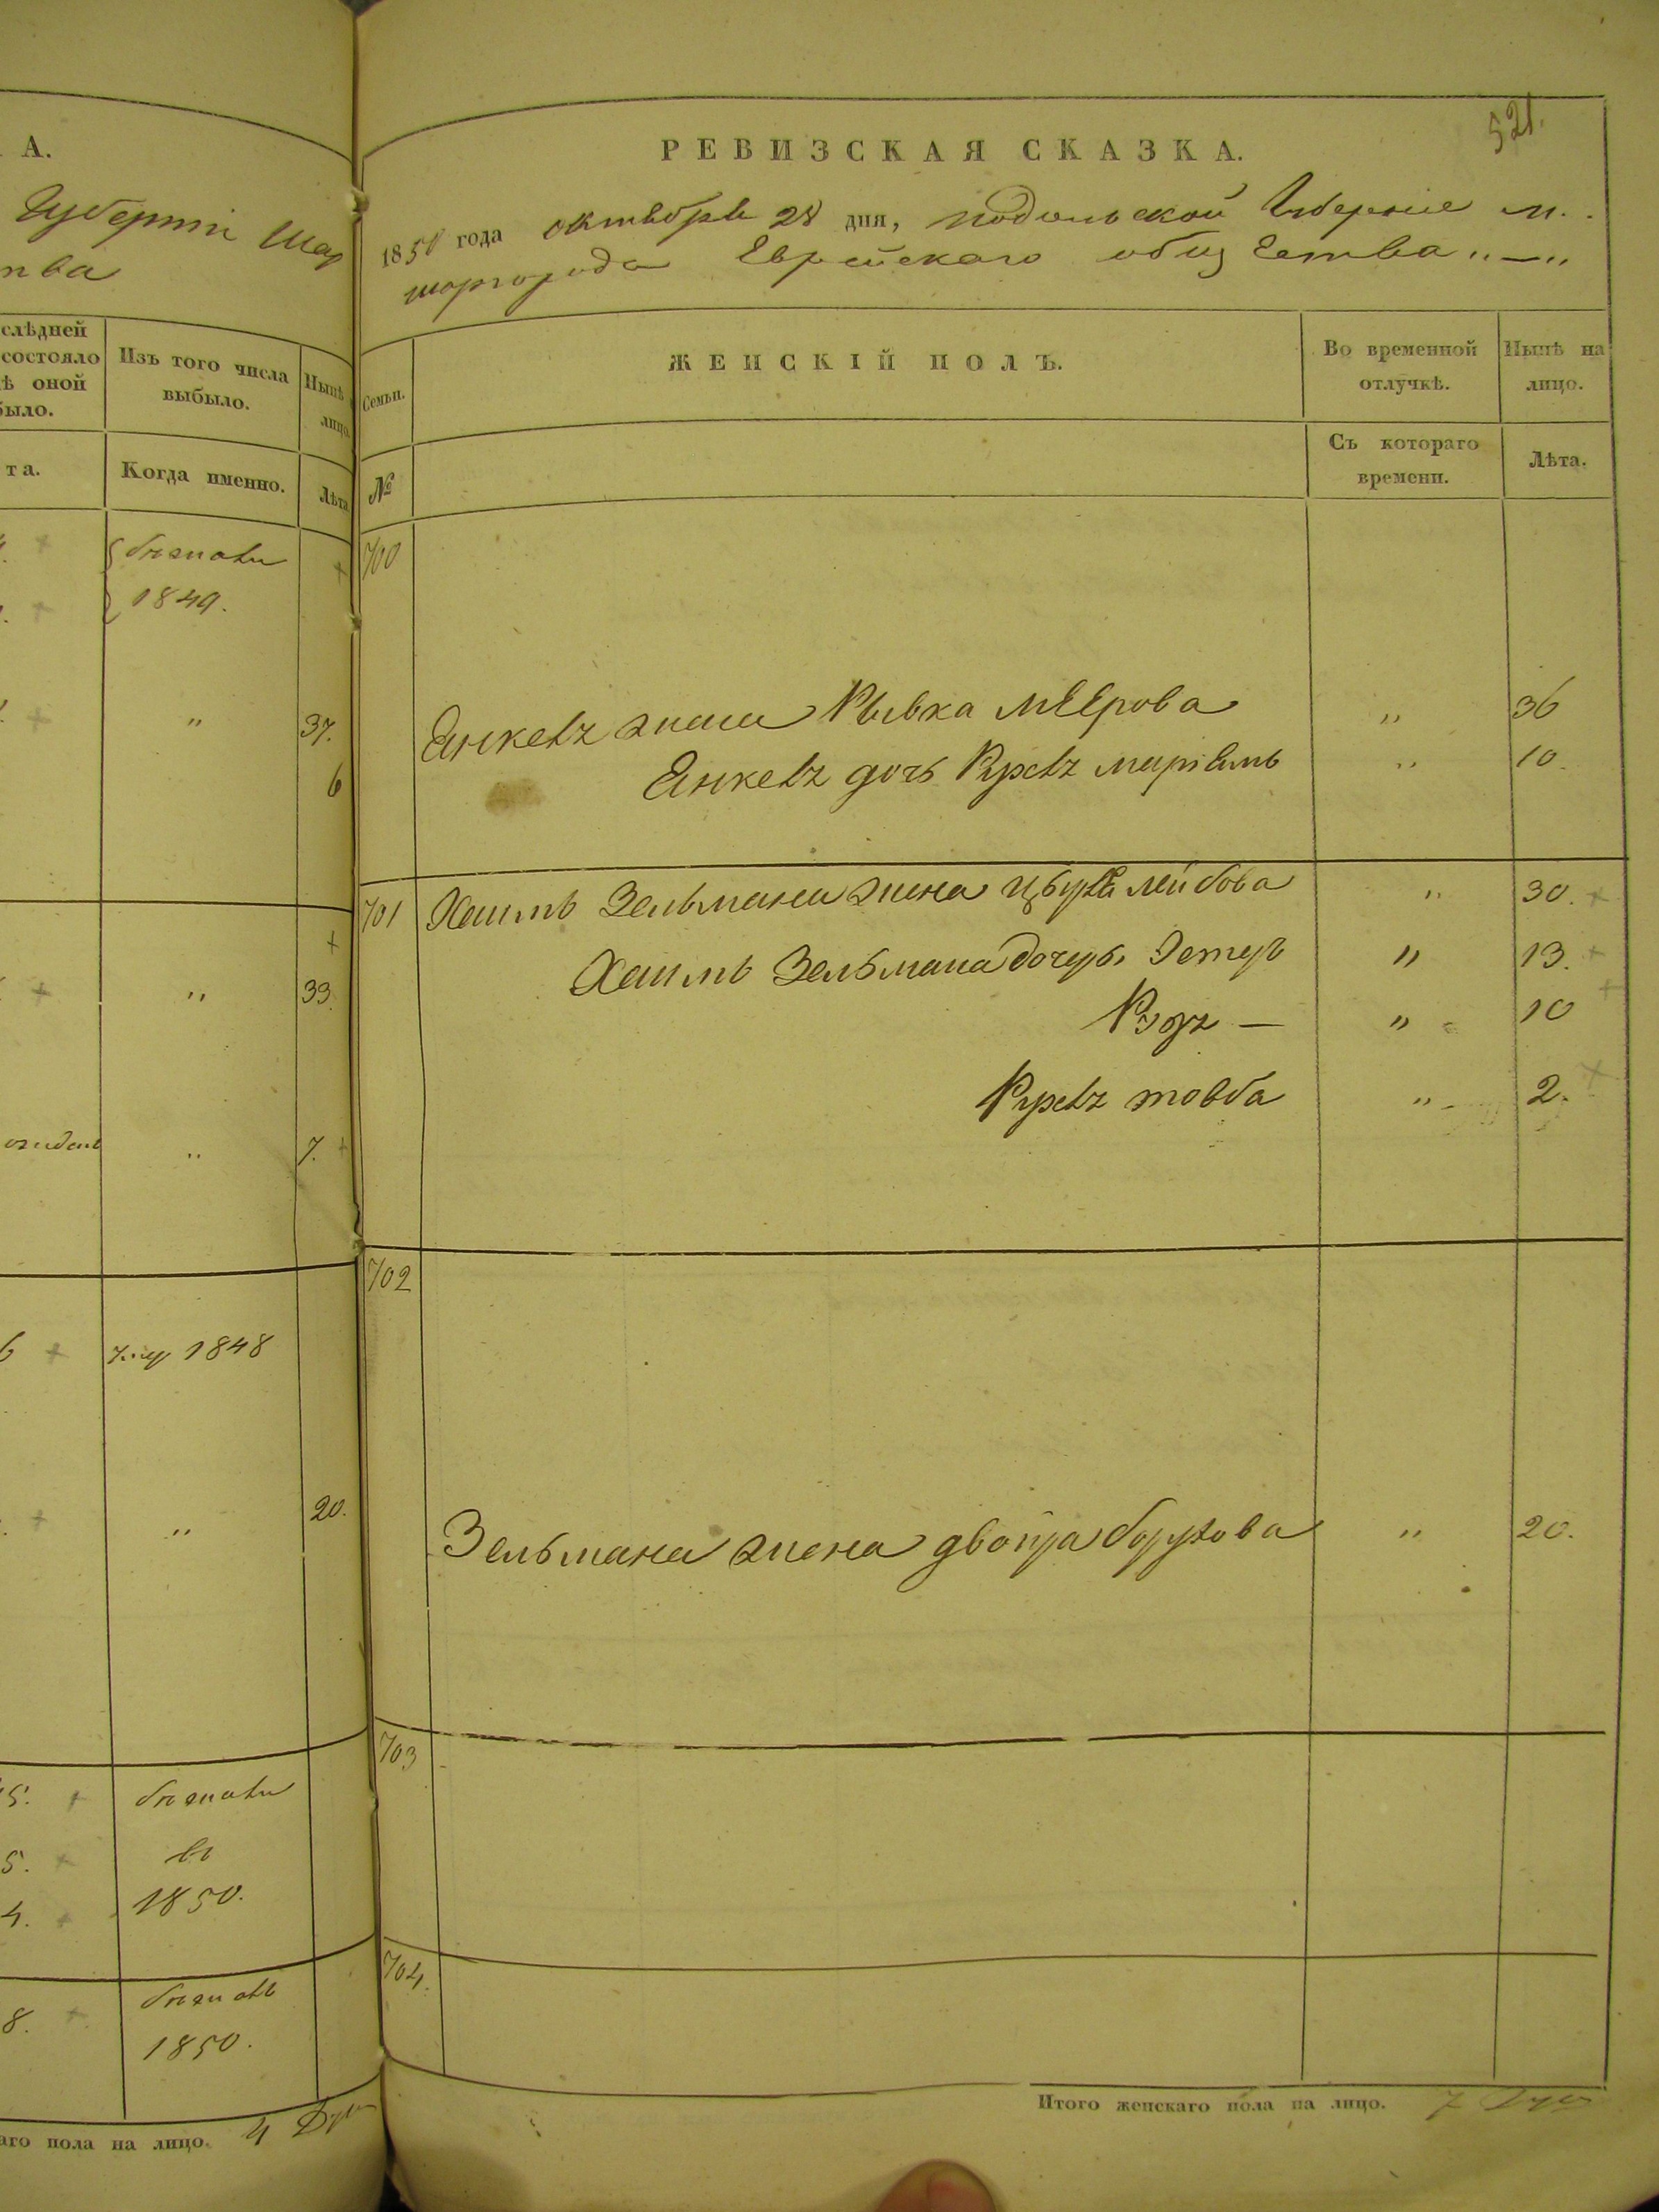 А.
Губерніи Шар
тва
слѣдней
состояло
ѣ оной
было.
Изъ того числа
выбыло.
Нынѣ
лицо
та.
Когда именно.
Лѣта
1849.
"
37.
6
"
33.
"
7.
1848
"
20.
5.
5.
4.
въ
1850.
8.
1850.
аго пола на лицо. 4 Душ
521.
РЕВИЗСКАЯ СКАЗКА.
1850 года октября 28 дня, подольской Губерніе м.
шаргорода Еврейскаго общества „—„
Семьи.
ЖЕНСКІЙ ПОЛЪ.
Во временной
отлучкѣ.
Нынѣ на
лицо.
№
Съ котораго
времени.
Лѣта.
700
Янкеля жена Рывка меерова " 36
Янкеля дочь Маріемъ " 10.
701 Зельмана жена лейбова " 30.
Зельмана дочерь Эстеръ " 13.
— " 10
товба " 2.
702
Зельмана жена двойра борухова " 20.
703
704.
Итого женскаго пола на лицо. 7 Душ